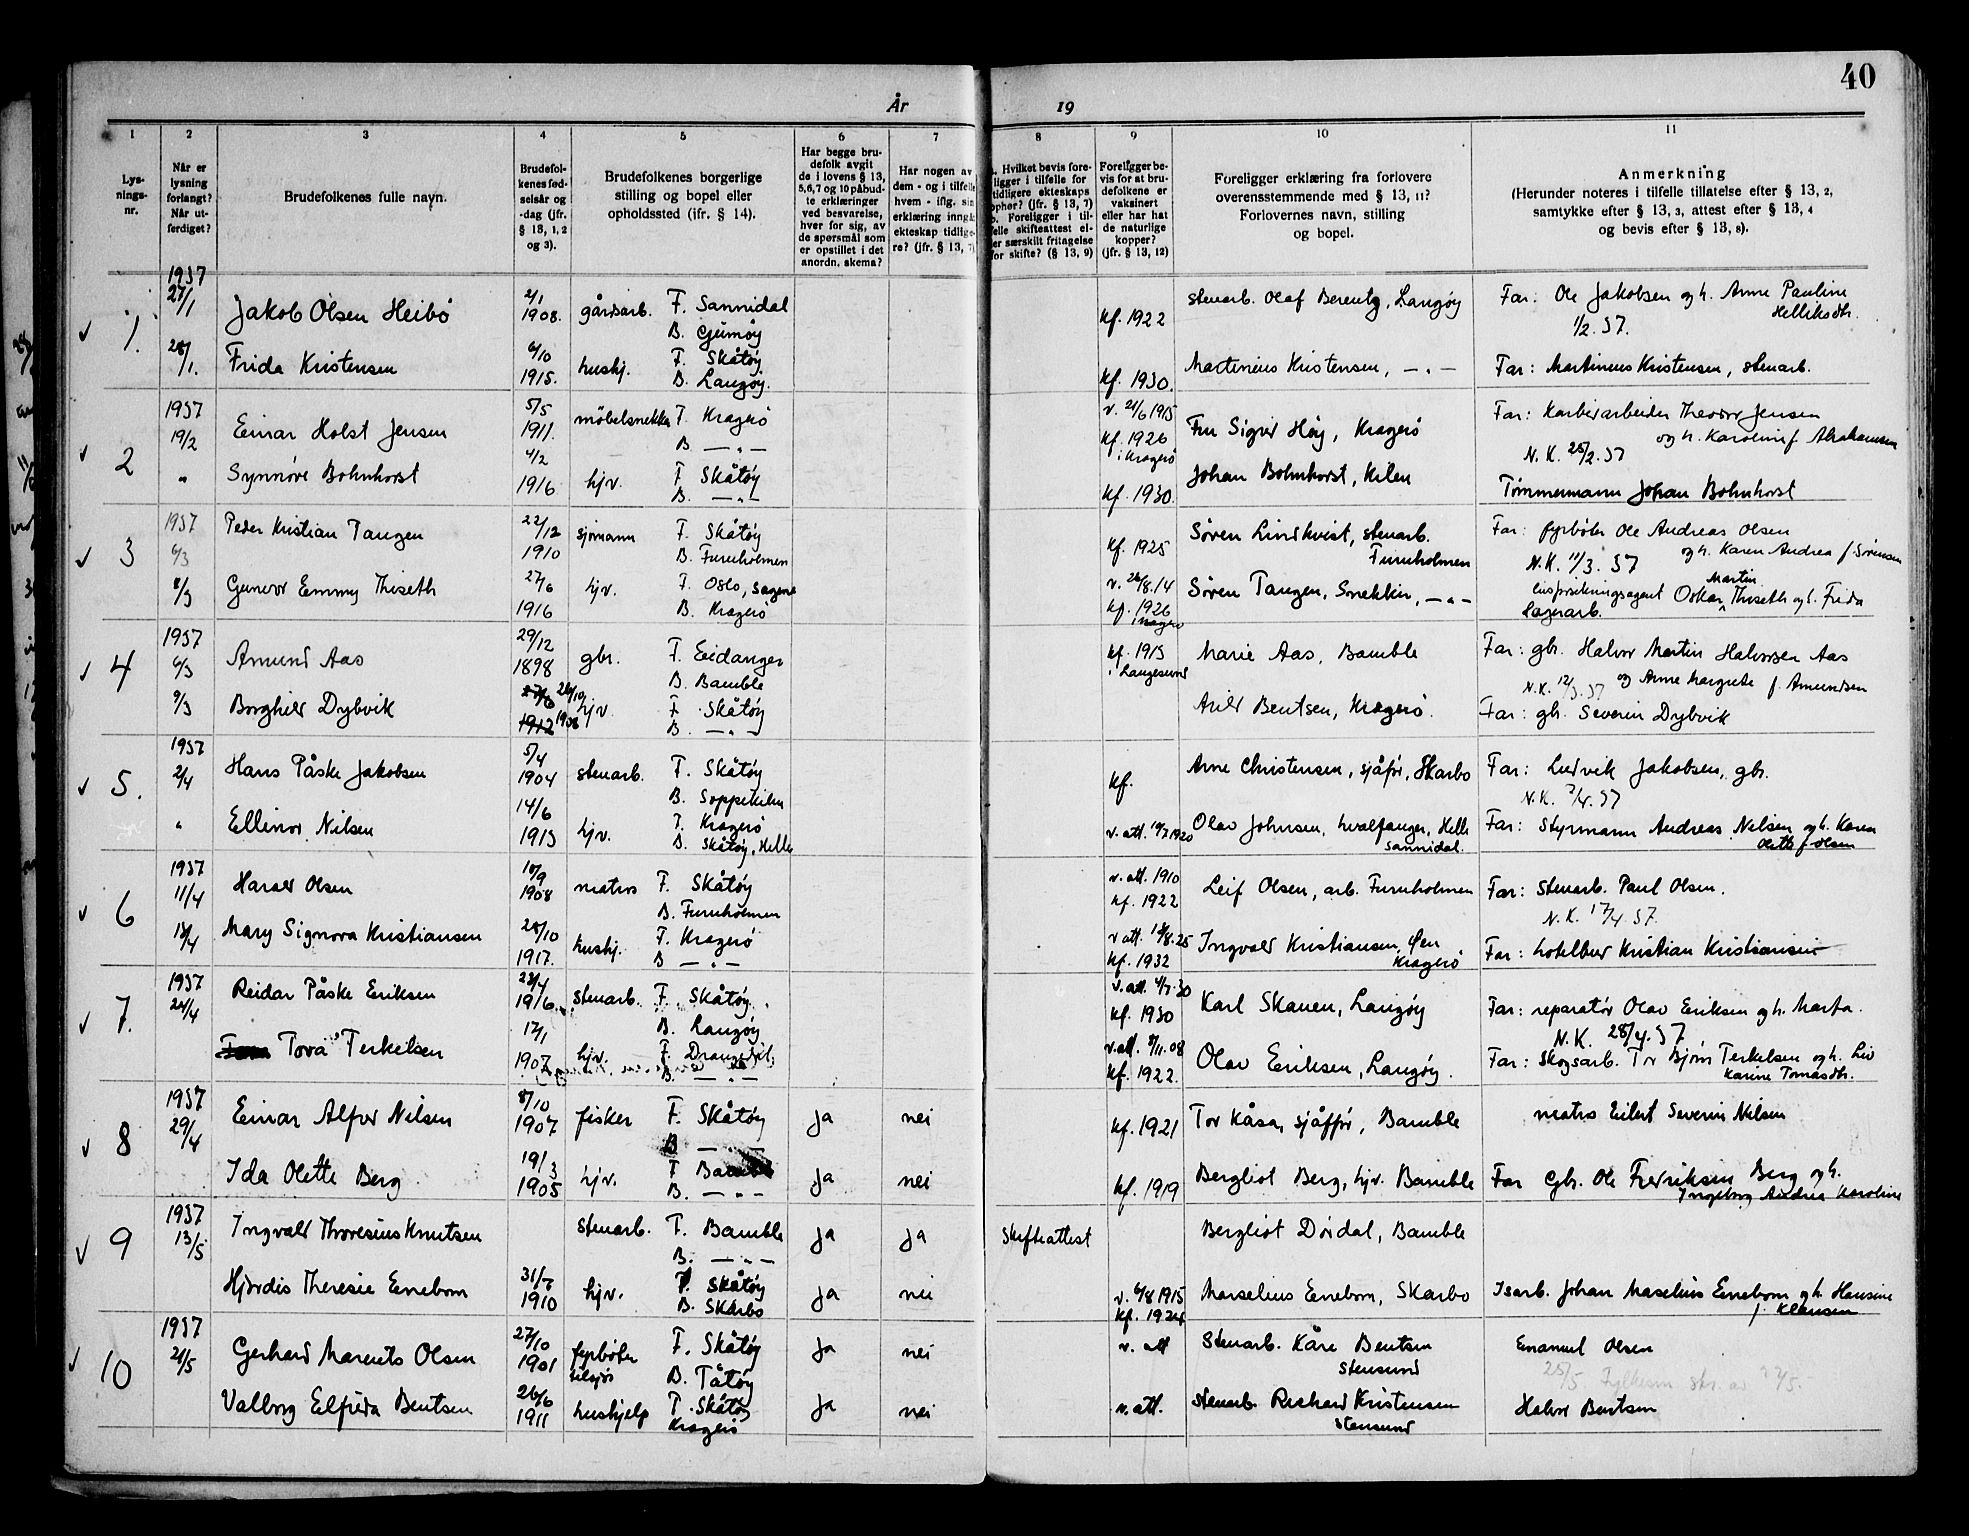 40
År 19
1 2 3 4 5 6 7 8 9 10 11
Lys-
nings-
nr.
Når er
lysning
forlangt?
Når ut-
ferdiget?
Brudefolkenes fulle navn.
Brudefol-
kenes fød-
selsår og
-dag (jfr.
§ 13, 1, 2
og 3).
Brudefolkenes borgerlige
stilling og bopel eller
opholdssted (ifr. § 14).
Har begge bru-
defolk avgit
de i lovens § 13,
5,6,7 og 10 påbud-
te erklæringer
ved besvarelse,
hver for sig, av
de spørsmål som
er opstillet i det
anordn. skema?
Har nogen av
dem - og i tilfelle
hvem - iflg. sin
erklæring inngå
ekteskap tidlige-
re? (jfr. § 13, 7)
Hvilket bevis fore-
ligger i tilfelle for
tidligere ekteskaps
ophør? (jfr. § 13, 7)
Foreligger i til-
felle skifteattest el-
ler særskilt fritagelse
for skifte? (§ 13, 9)
Foreligger be-
vis for at bru-
defolkene er
vaksinert
eller har hat
de naturlige
kopper?
(jfr. § 13, 12)
Foreligger erklæring fra forlovere
overensstemmende med § 13, 11?
Forlovernes navn, stilling
og bopel.
Anmerkning
(Herunder noteres i tilfelle tillatelse efter § 13, 2,
samtykke efter § 13, 3, attest efter § 13, 4
og bevis efter § 13, 8).
1. 1937 27/1 Jakob Olsen Heibö 2/1 1908. gårdsarb. F. Sannidal
B. Gumöy
kf. 1922 stenarb. Olaf Berentz, Langöy Far: Ole Jakobsen og h. Anne Pauline
Helliksdtr.
1/2.37.
28/1. Frida Kristensen 6/10 1915. hushj. F. Skåtöy
B. Langöy.
kf. 1930. Martinius Kristensen, — " — Far: Martinius Kristensen, stenarb.
2 1937 19/2 Einar Holst Jensen 5/5 1911. möbelsnekker F. Kragerö
B — " —
v. 21/6 1915
kf. 1926
i Kragerö
Fru Sigrid Höy, Kragerö Far: Karbidarbeider Theodor Jensen
og h. Karoline f. Abrahamsen
N.K. 25/2.37
" Synnöve Bohnhorst 4/2 1916 hjv. F Skåtöy
B. — " —
kf. 1930. Johan Bohnhorst, Kilen Tömmermann Johan Bohnhorst
3 1937 6/3 Peder Kristian Tangen 22/12 1910 sjömann F. Skåtöy
B. Furuholmen
kf. 1925 Sören Lindkvist, stenarb.
Furuholmen
Far: fyrböter Ole Andreas Olsen
og h. Karen Andrea f. Sörensen
N.K. 11/3.37
8/3 Gunvor Emmy Thiseth 27/6 1916 hjv. F. Oslo, Sagene
B. Kragerö
v. 26/8.14
kf. 1926
i Kragerö
Sören Tangen, Snekkin, — " — Martin
Oskar Thiseth og h. Frida
lagerarb.
4 1937 6/3 Amund Aas 29/12 1898 gbr. F. Eidanger
B. Bamble
kf. 1913
i Langesund
Marie Aas, Bamble Far: gbr. Halvor Martin Halvorsen Aas
og Anne Margrete f. Amundsen
N.K. 12/3.37
9/3 Borghild Dybvik 27/6 1912 28/10 1908 hjv. F. Skåtöy
B. — " —
Arild Bentsen, Kragerö. Far: gbr. Severin Dybvik
5. 1937 2/4 Hans Påske Jakobsen 5/4 1904 stenarb. F. Skåtöy
B. Soppekilen
kf. Arne Christensen, sjåför, Skarbo Far: Ludvik Jakobsen, gbr.
N.K. 7/4.37
" Ellinor Nilsen 14/6 1913 hjv. F. Kragerö
B. Skåtöy, Helle
Olav Johnsen, hvalfanger, Helle
Sannidal.
Far: Styrmann Andreas Nilsen og h. Karen
Olette f. Olsen
6 1937 11/4 Harald Olsen 10/9 1908 matros F. Skåtöy
B. Furuholmen
v. att. 1910
kf. 1922
Leif Olsen, arb. Furuholmen Far: Stenarb. Paul Olsen.
N.K. 17/4.37.
13/4 Mary Signora Kristiansen 28/10 1917. hushj. F. Kragerö
B — " —
kf. 1932 Ingvald Kristiansen, Öen
Kragerö
Far: hotellbud Kristian Kristiansen
7. 1937 24/4 Reidar Påske Eriksen 23/4 1916. stenarb. F. Skåtöy.
B. Langöy
kf. 1930 Karl Skauen, Langöy Far: reparatör Olav Eriksen og h. Marta.
N.K. 28/4.37
Tora Terkelsen 17/1 1907 hjv. F. Drangedal.
B. — " —
v. att. 8/11.08
kf. 1922. Olav Eriksen, Langöy. Far: Skogsarb. Tor Bjørn Terkelsen og h. Liv
Karine Tomasdtr.
8 1937 29/4 Einar Alfred Nilsen 8/10 1907 fisker F. Skåtöy
B — " —
ja nei kf. 1921 Tor Kåsa, sjåfför, Bamble matros Eilert Severin Nilsen
Ida Olette Berg 19/3 1905 hjv. F Bamble
B. — " —
ja nei kf. 1919 Bergliot Berg, hjv. Bamble Far Gbr. Ole Fredriksen Berg og h.
Ingeborg Andrea Karoline
9 1937 13/5 Ingvald Thoresius Knutsen stenarb. F. Bamble
B. — " —
ja ja Skifteattest Bergliot Dördal, Bamble
Hjördis Theresie Ennebom 31/7 1910 hjv. F. Skåtöy
B. Skarbo
ja nei v. 6/8 1915
kf. 1924
Marselius Ennebom, Skarbo Isarb. Johan Maselius Ennebom og h. Hansine
f. Klausen
10 1937 21/5 Gerhard Marents Olsen 27/10 1901 fyrböter
tilsjøs
F. Skåtöy
B. Tåtöy
ja nei v. att Stenarb. Kåre Bentsen
Stensund
Emanuel Olsen
Valborg Elfrida Bentsen 26/6 1911 hushjelp F. Skåtöy
Kragerö
ja nei v. att. Stenarb. Richard Kristensen
Stensund
Halvor Bentsen